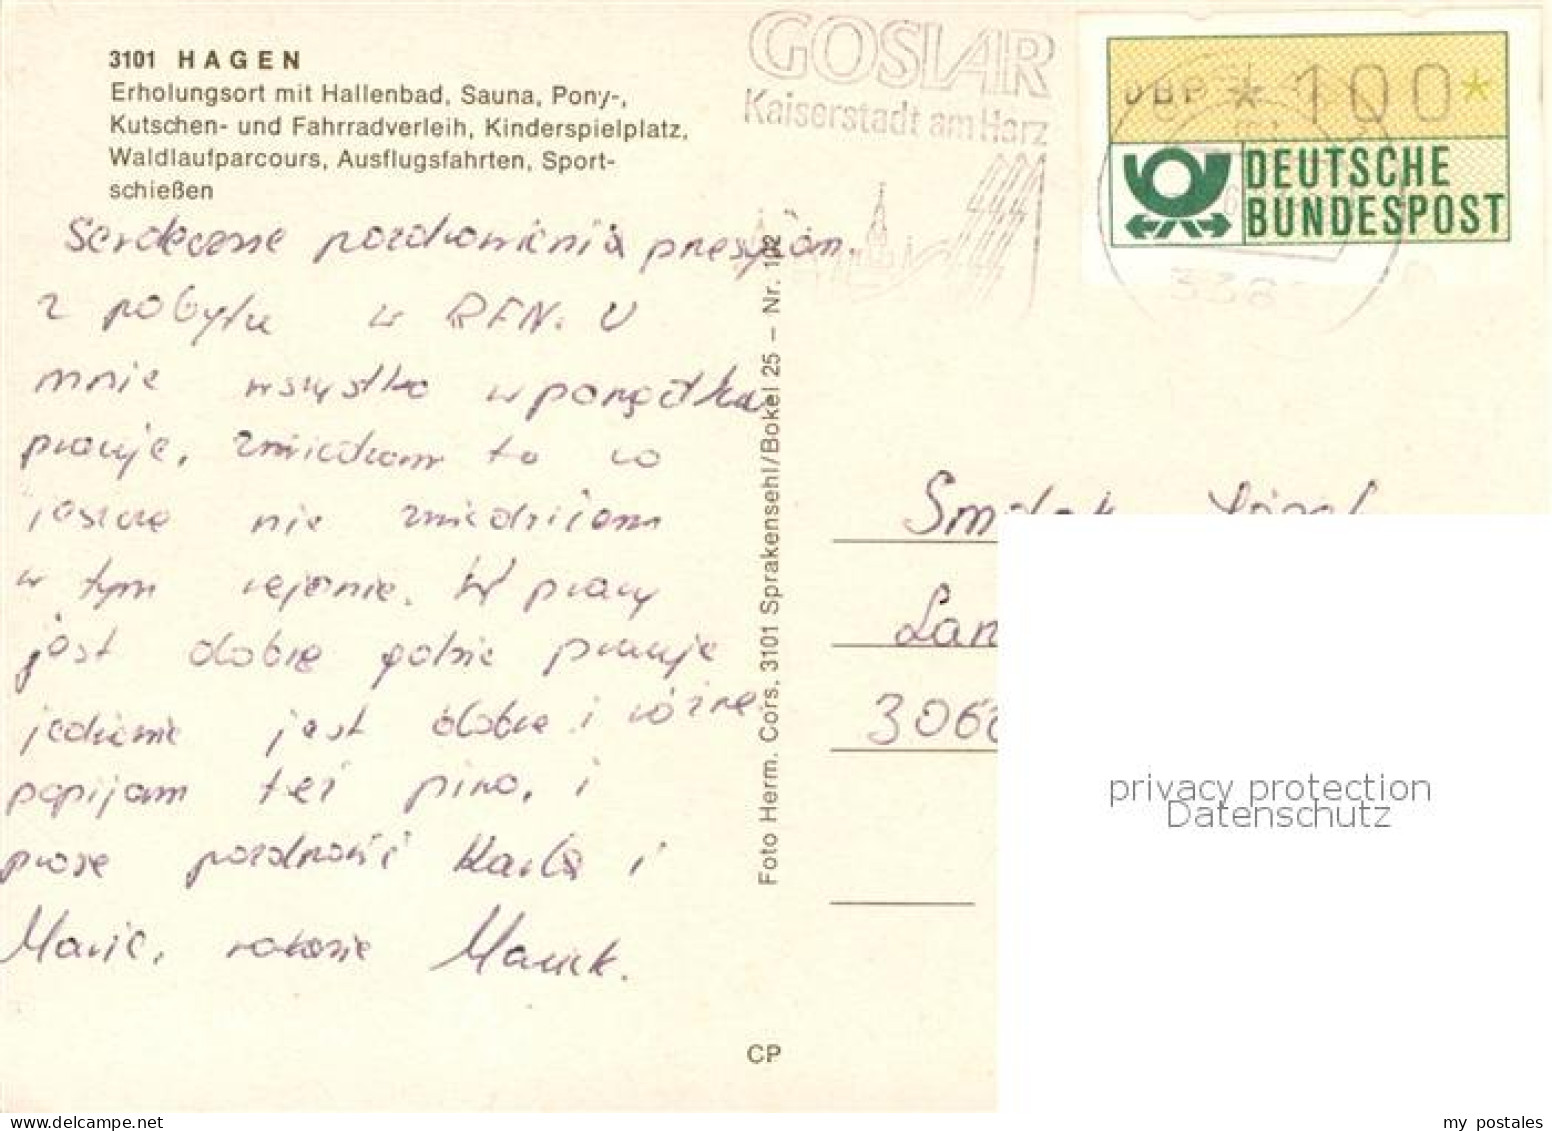 3101 HAGEN
Erholungsort mit Hallenbad, Sauna, Pony-,
Kutschen- und Fahrradverleih, Kinderspielplatz,
Waldlaufparcours, Ausflugsfahrten, Sport-
schießen
GOSLAR
Kaiserstadt am Harz
DBP * 100 *
DEUTSCHE
BUNDESPOST
338
Serdeczne pozdrowienia przesyłam
z pobytu w RFN. U
mnie wszystko w porządku
pracuję, zwiedzam to co
jeszcze nie zwiedziłam
w tym rejonie. W pracy
jest dobrze
jedzenie jest dobre i różne
popijam też piwo, i
proszę pozdrowić Karla i
Marię, na razie Marek.
Foto Herm. Cors, 3101 Sprakensehl/Bokel 25 – Nr. 102
Lan
306
privacy protection
Datenschutz
CP
my postales